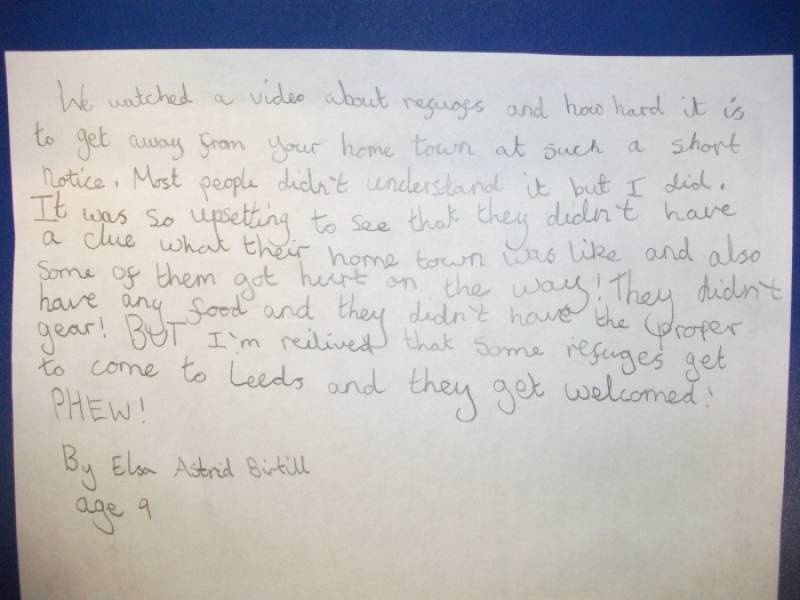 We watched a video about refuges and how hard it is
to get away from your home town at such a short
notice. Most people didn't understand it but I did.
It was so upsetting to see that they didn't have
a clue what their home town was like and also
some of them got hurt on the way! They didn't
have any food and they didn't have the proper
gear! BUT I'm reilived that some refuges get
to come to Leeds and they get welcomed!
PHEW!
By Elsa Astrid Birtill
age 9